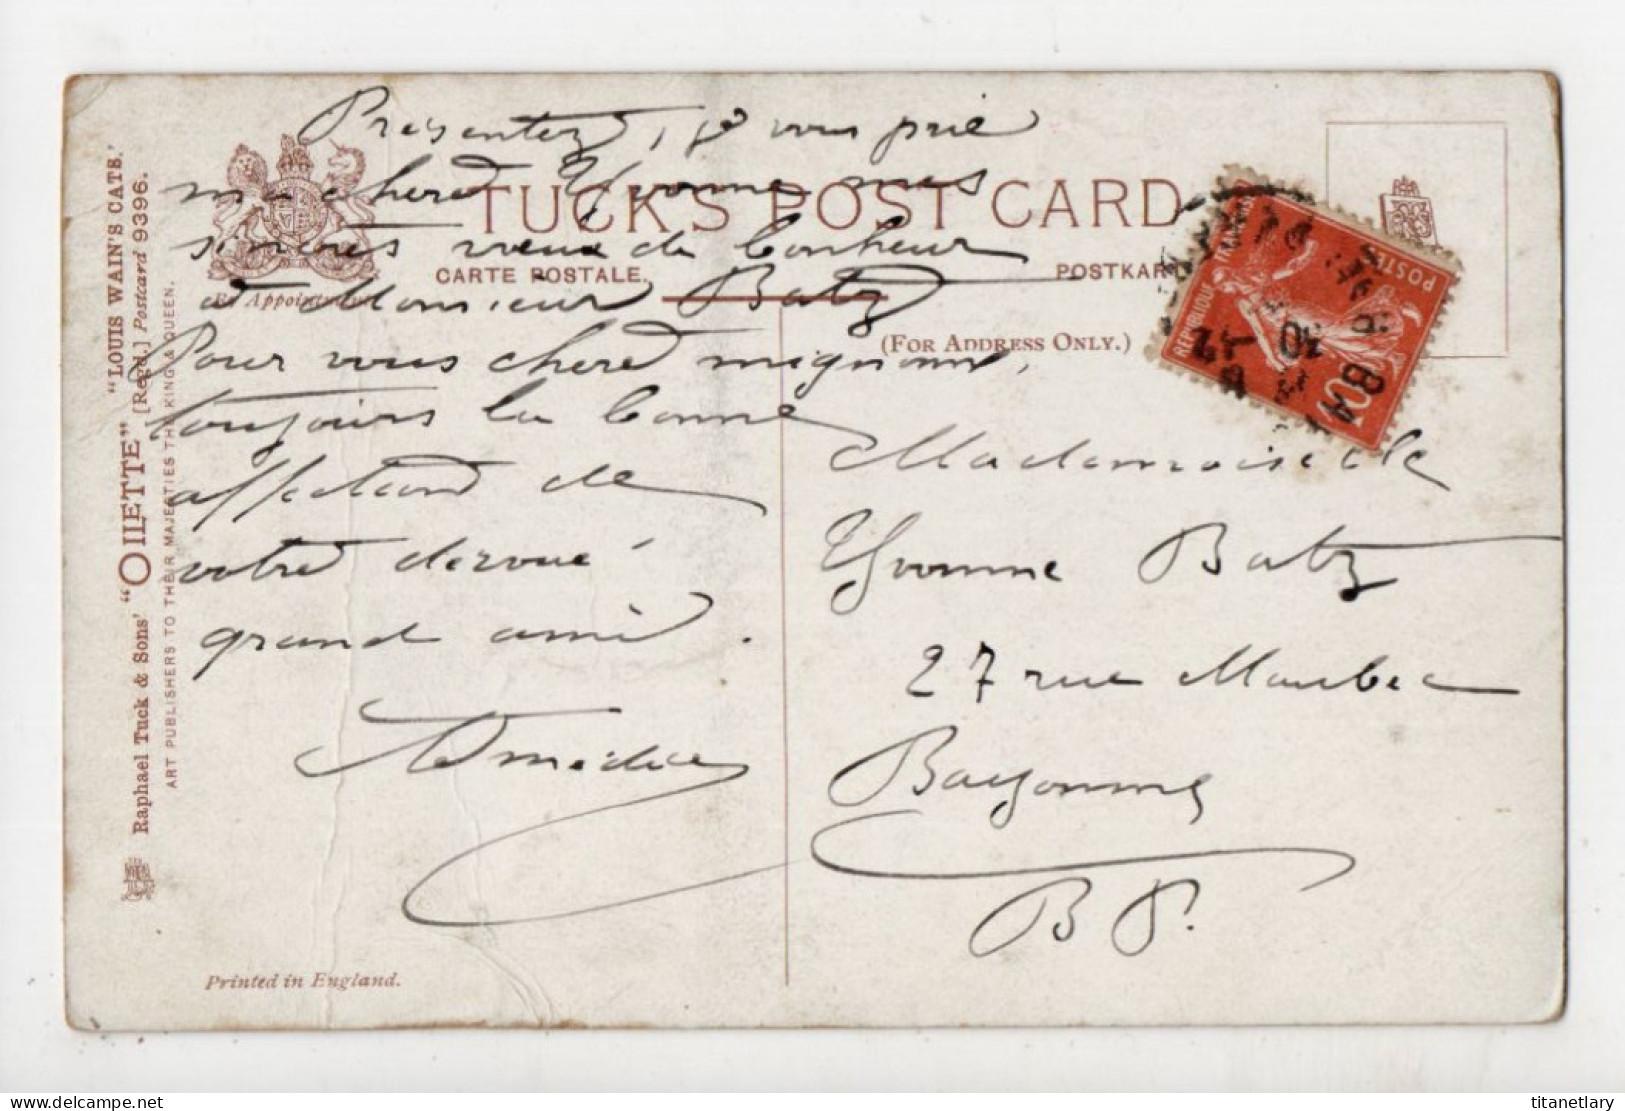 Présentez, je vous prie
ma chère Yvonne mes
sincères vœux de bonheur
à Monsieur Batz
Pour vous chère mignonne,
toujours la bonne
affection de
votre dévoué
grand ami.
Amédée
TUCK'S POST CARD
CARTE POSTALE.
POSTKAR
By Appointment
(FOR ADDRESS ONLY.)
Mademoiselle
Yvonne Batz
27 rue Maubec
Bayonne
B P.
"LOUIS WAIN'S CATS."
[Regd.] Postcard 9396.
Raphael Tuck & Sons' "OILETTE"
ART PUBLISHERS TO THEIR MAJESTIES THE KING & QUEEN.
Printed in England.
REPUBLIQUE FRANÇAISE
POSTES
10
titanetlary